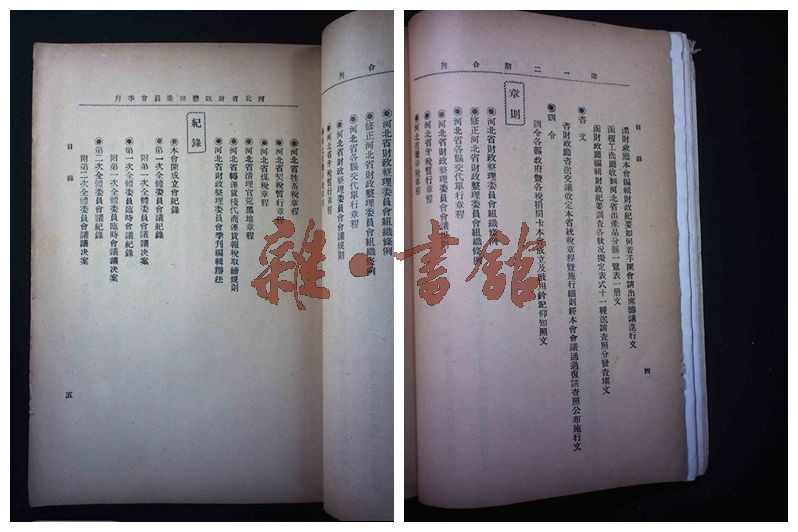 河北省財政整理委員會季刊
紀錄
目錄
五
●河北省牲畜稅章程
●河北省契稅暫行章程
●河北省煤稅章程
●河北省清理官荒黑地章程
●河北省轉運貨棧代商運貨報稅取締規則
●河北省財政整理委員會季刊編輯辦法
●本會開成立會紀錄
●第一次全體委員會議紀錄
附第一次全體委員會議議決案
●第一次全體委員臨時會議紀錄
附第一次全體委員臨時會議議決案
●第二次全體委員會議紀錄
附第二次全體委員會議議決案
合刊
●河北省財政整理委員會組織條例
●修正河北省財政整理委員會組織條例
●河北省各縣交代單行章程
●河北省財政整理委員會會議規則
●河北省牙稅暫行章程
第一二期合刊
目錄
四
函財政廳本會編輯財政紀要如何着手開會請出席籌議進行文
函復工商廳收到河北省出產品分縣一覽表一册文
函財政廳編輯財政紀要調查各狀況擬定表式十一種送請查照分發查填文
●咨文
咨財政廳咨送交議改定本省統稅章程暨施行細則經本會會議通過復請查照公布施行文
●訓令
訓令各縣政府暨各稅捐局卡本會成立及啟用鈐記仰知照文
章則
●河北省財政整理委員會組織條例
●修正河北省財政整理委員會組織條例
●河北省各縣交代單行章程
●河北省財政整理委員會會議規則
●河北省牙稅暫行章程
雜·書館